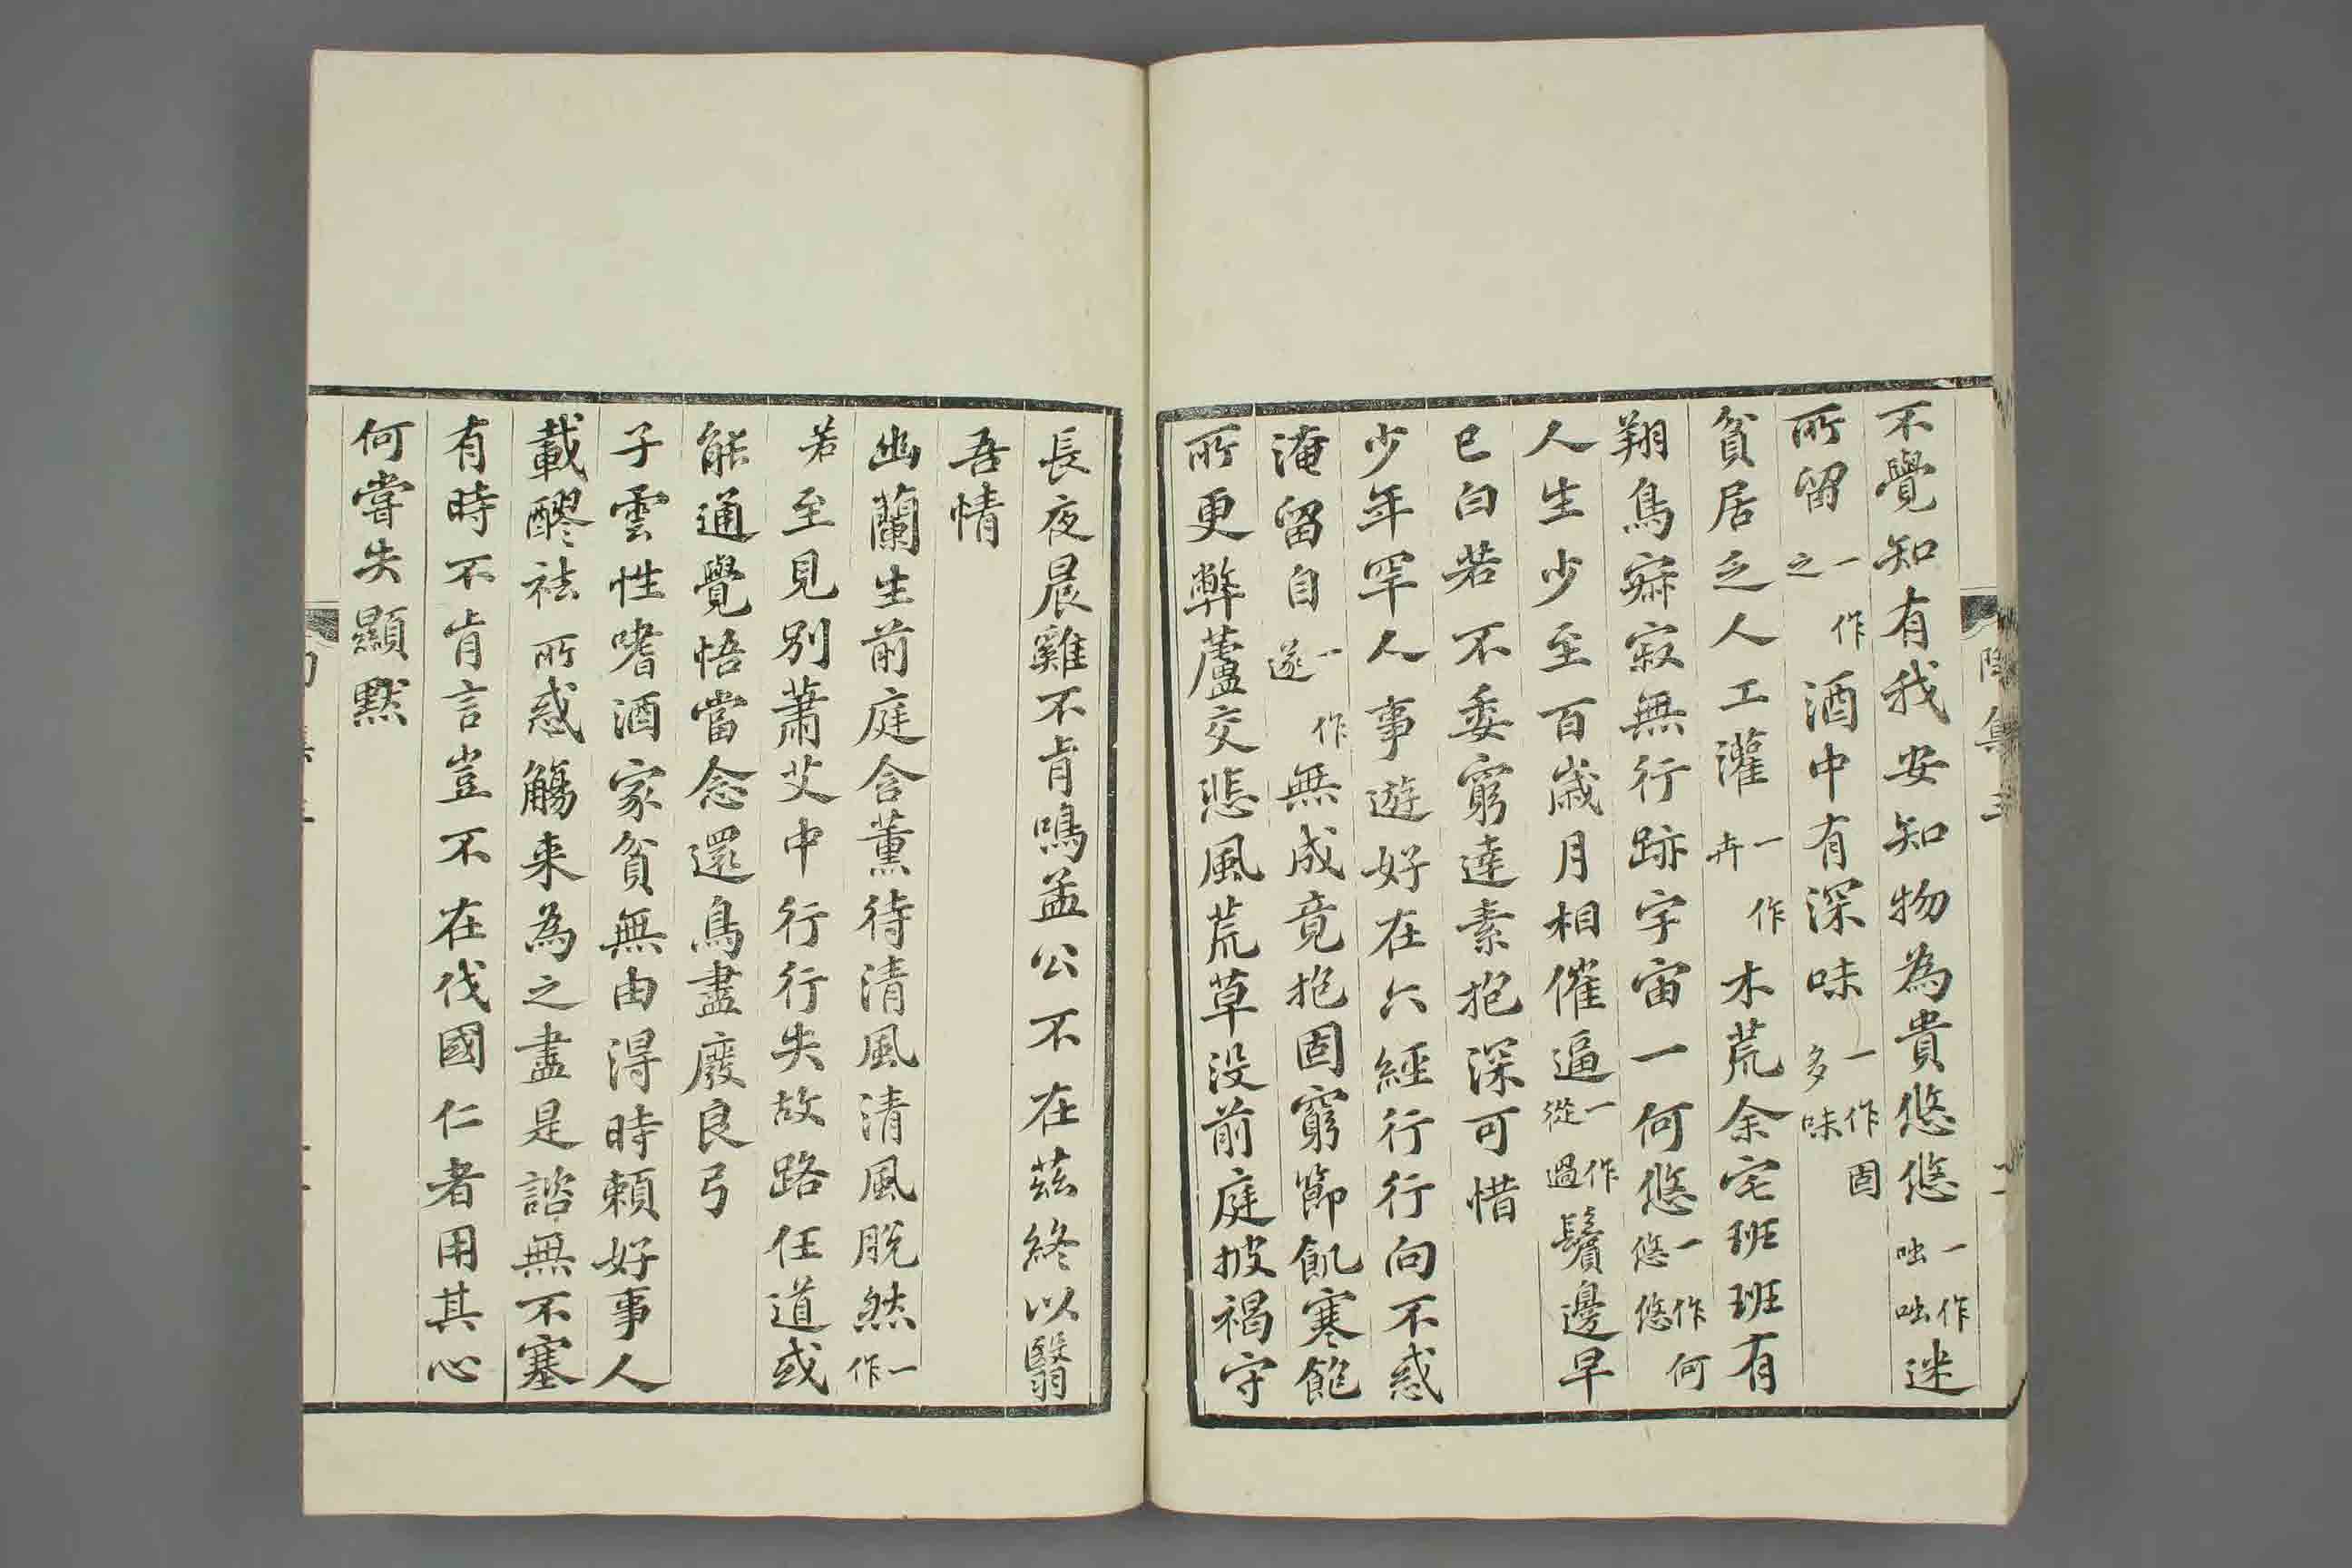 不覺知有我安知物為貴悠悠一作咄咄迷
所留一作之酒中有深味一作固多味
貧居乏人工灌一作卉木荒余宅班班有
翔鳥寂寂無行跡宇宙一何悠一作何悠悠
人生少至百歲月相催逼一作從過鬢邊早
已白若不委窮達素抱深可惜
少年罕人事遊好在六經行行向不惑
淹留自一作遂無成竟抱固窮節飢寒飽
所更弊廬交悲風荒草沒前庭披褐守
長夜晨雞不肯鳴孟公不在茲終以翳
吾情
幽蘭生前庭含薰待清風清風脫然一作
若至見別蕭艾中行行失故路任道或
能通覺悟當念還鳥盡廢良弓
子雲性嗜酒家貧無由得時賴好事人
載醪祛所惑觴来為之盡是諮無不塞
有時不肯言豈不在伐國仁者用其心
何嘗失顯默